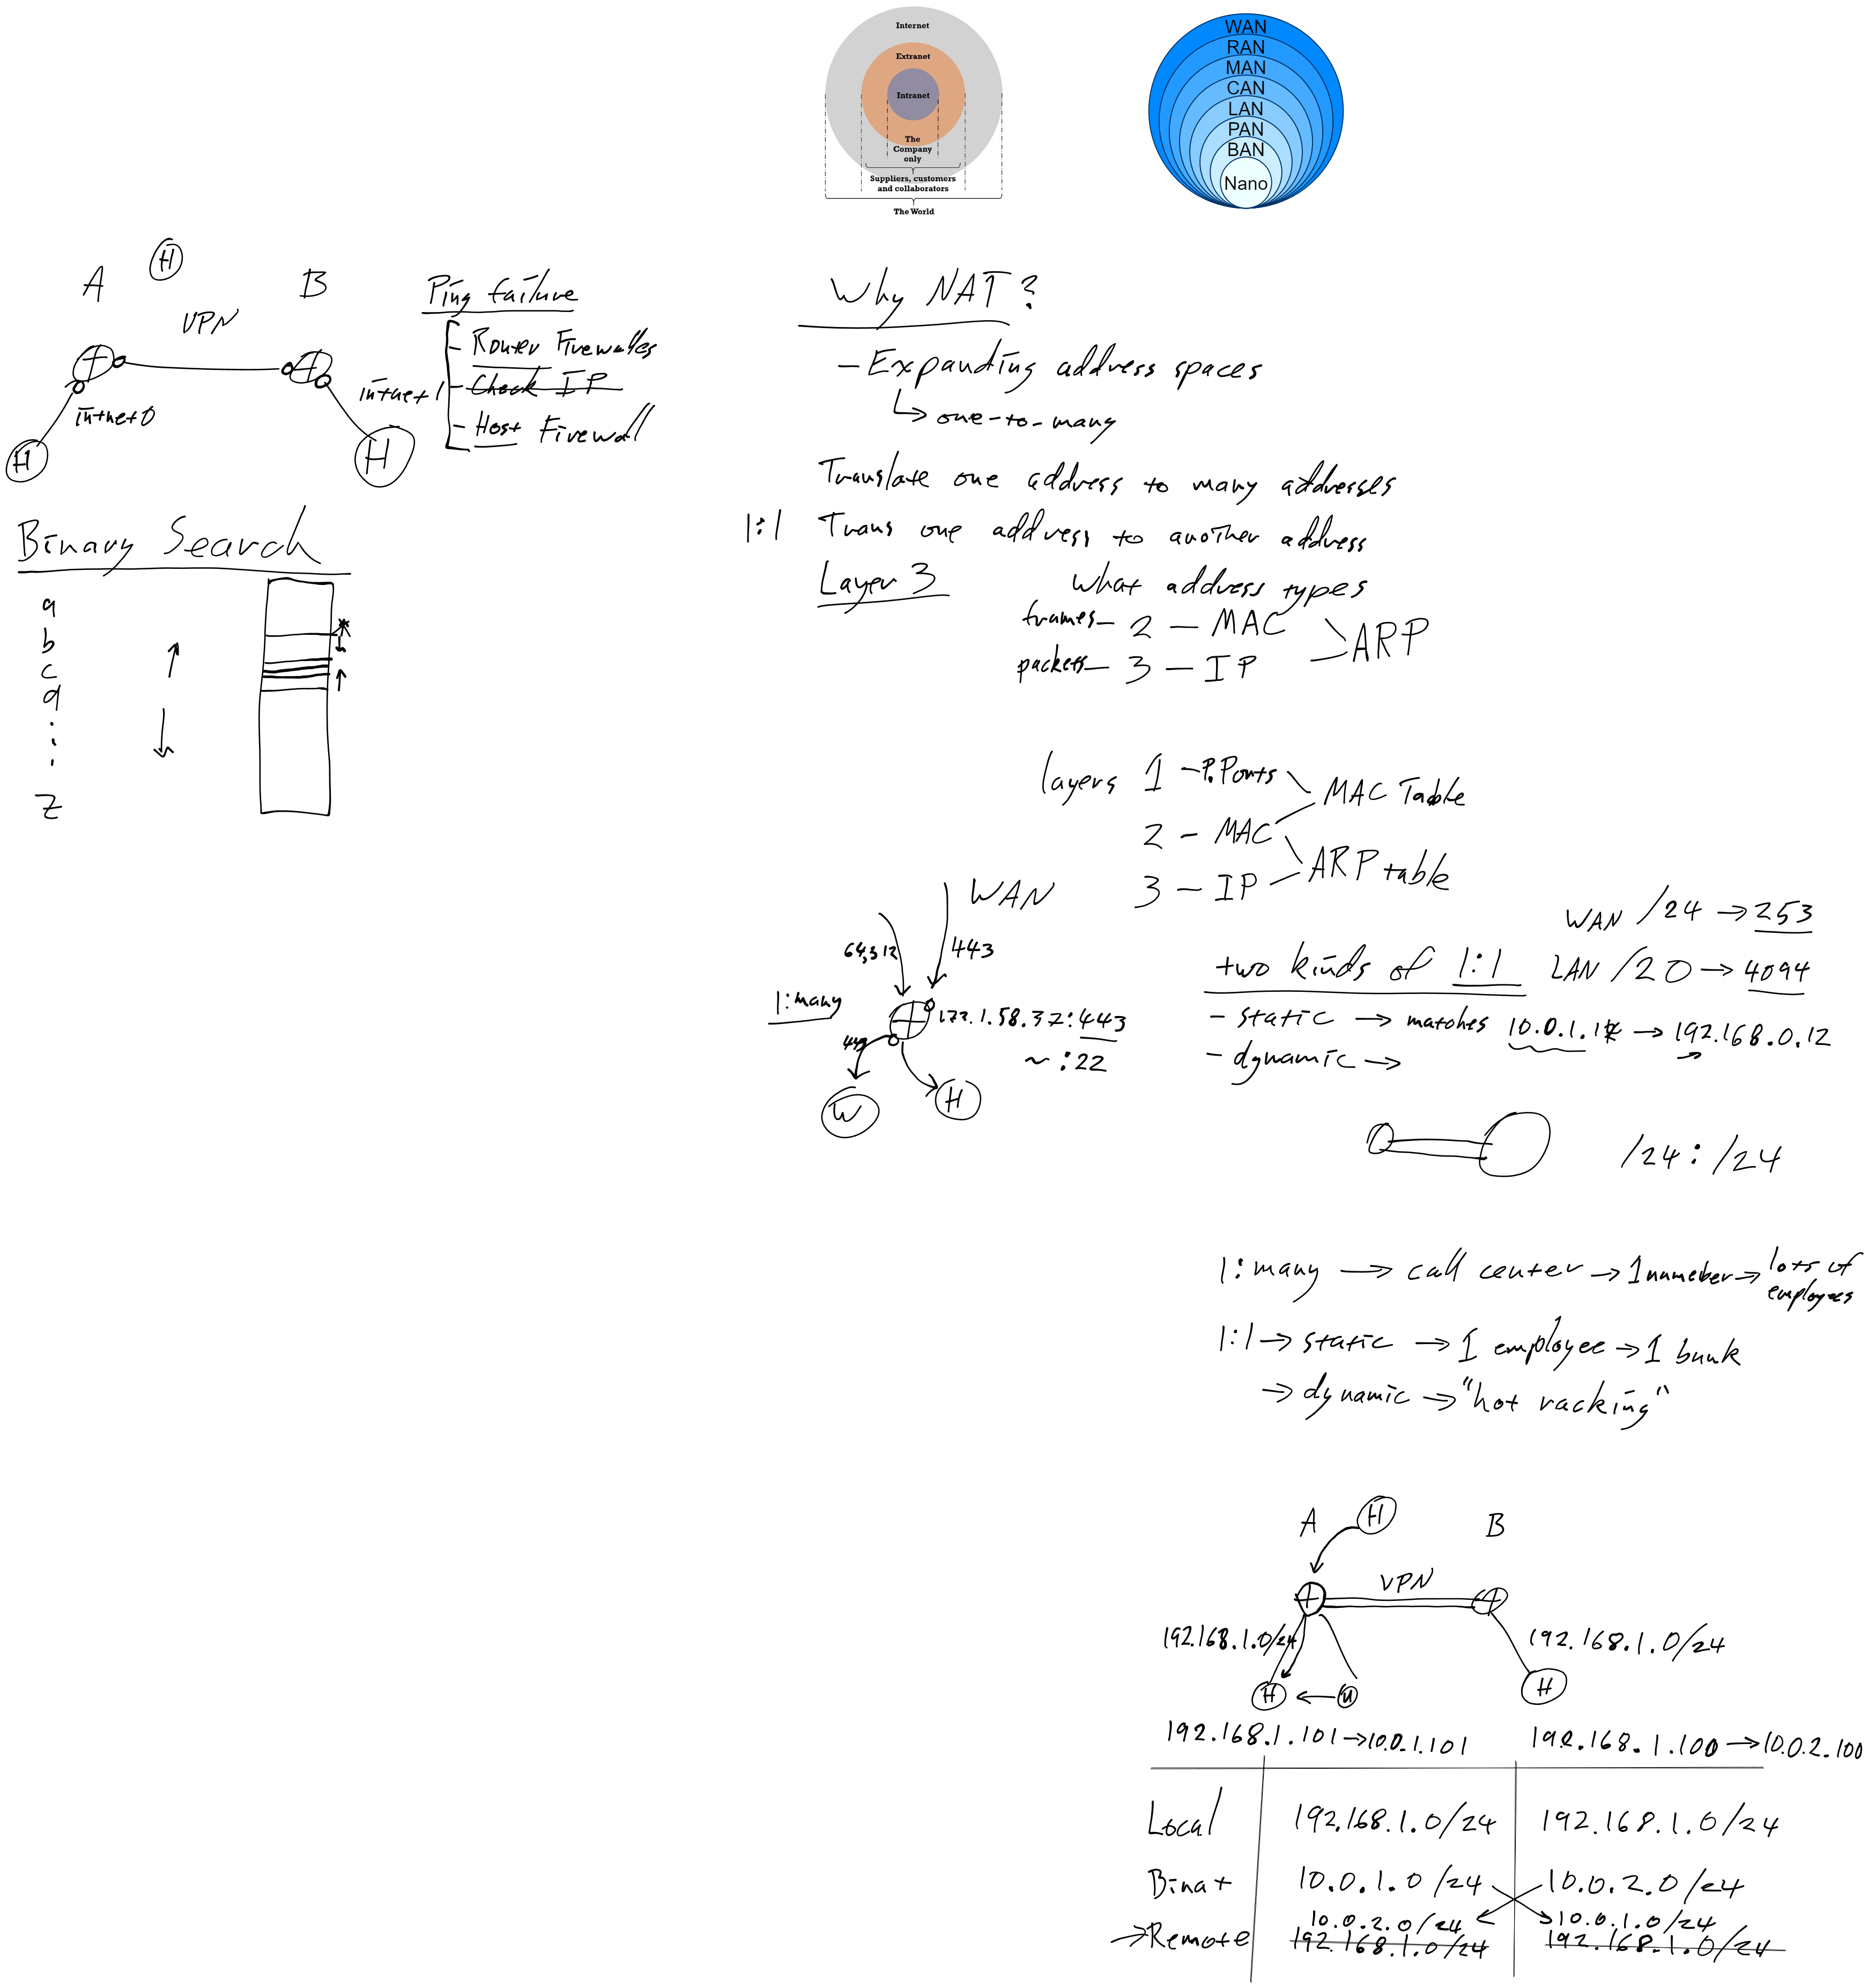 Internet
Extranet
Intranet
The
Company
only
Suppliers, customers
and collaborators
The World
WAN
RAN
MAN
CAN
LAN
PAN
BAN
Nano
A
H
B
VPN
intnet0
intnet1
H
H
Ping failure
- Router Firewalles
- Check IP
- Host Firewall
Binary Search
a
b
c
d
z
Why NAT?
- Expanding address spaces
↳ one-to-many
Translate one address to many addresses
1:1 Trans one address to another address
Layer 3
What address types
frames - 2 - MAC
packets - 3 - IP
ARP
layers 1 - P. Ports
2 - MAC
3 - IP
MAC Table
ARP table
WAN
443
1:many
:443
~ :22
W
H
WAN /24 → 253
LAN /20 → 4094
two kinds of 1:1
- static → matches 10.0.1.12 → 192.168.0.12
- dynamic →
/24 : /24
1:many → call center → 1 numeber → lots of
employees
1:1 → static → 1 employee → 1 bunk
→ dynamic → "hot racking"
A
H
B
VPN
192.168.1.0/24
192.168.1.0/24
H
H
192.168.1.101 → 10.0.1.101
192.168.1.100 → 10.0.2.100
Local 192.168.1.0/24 192.168.1.0/24
Binat 10.0.1.0/24 10.0.2.0/24
10.0.2.0/24 10.0.1.0/24
→ Remote 192.168.1.0/24 192.168.1.0/24